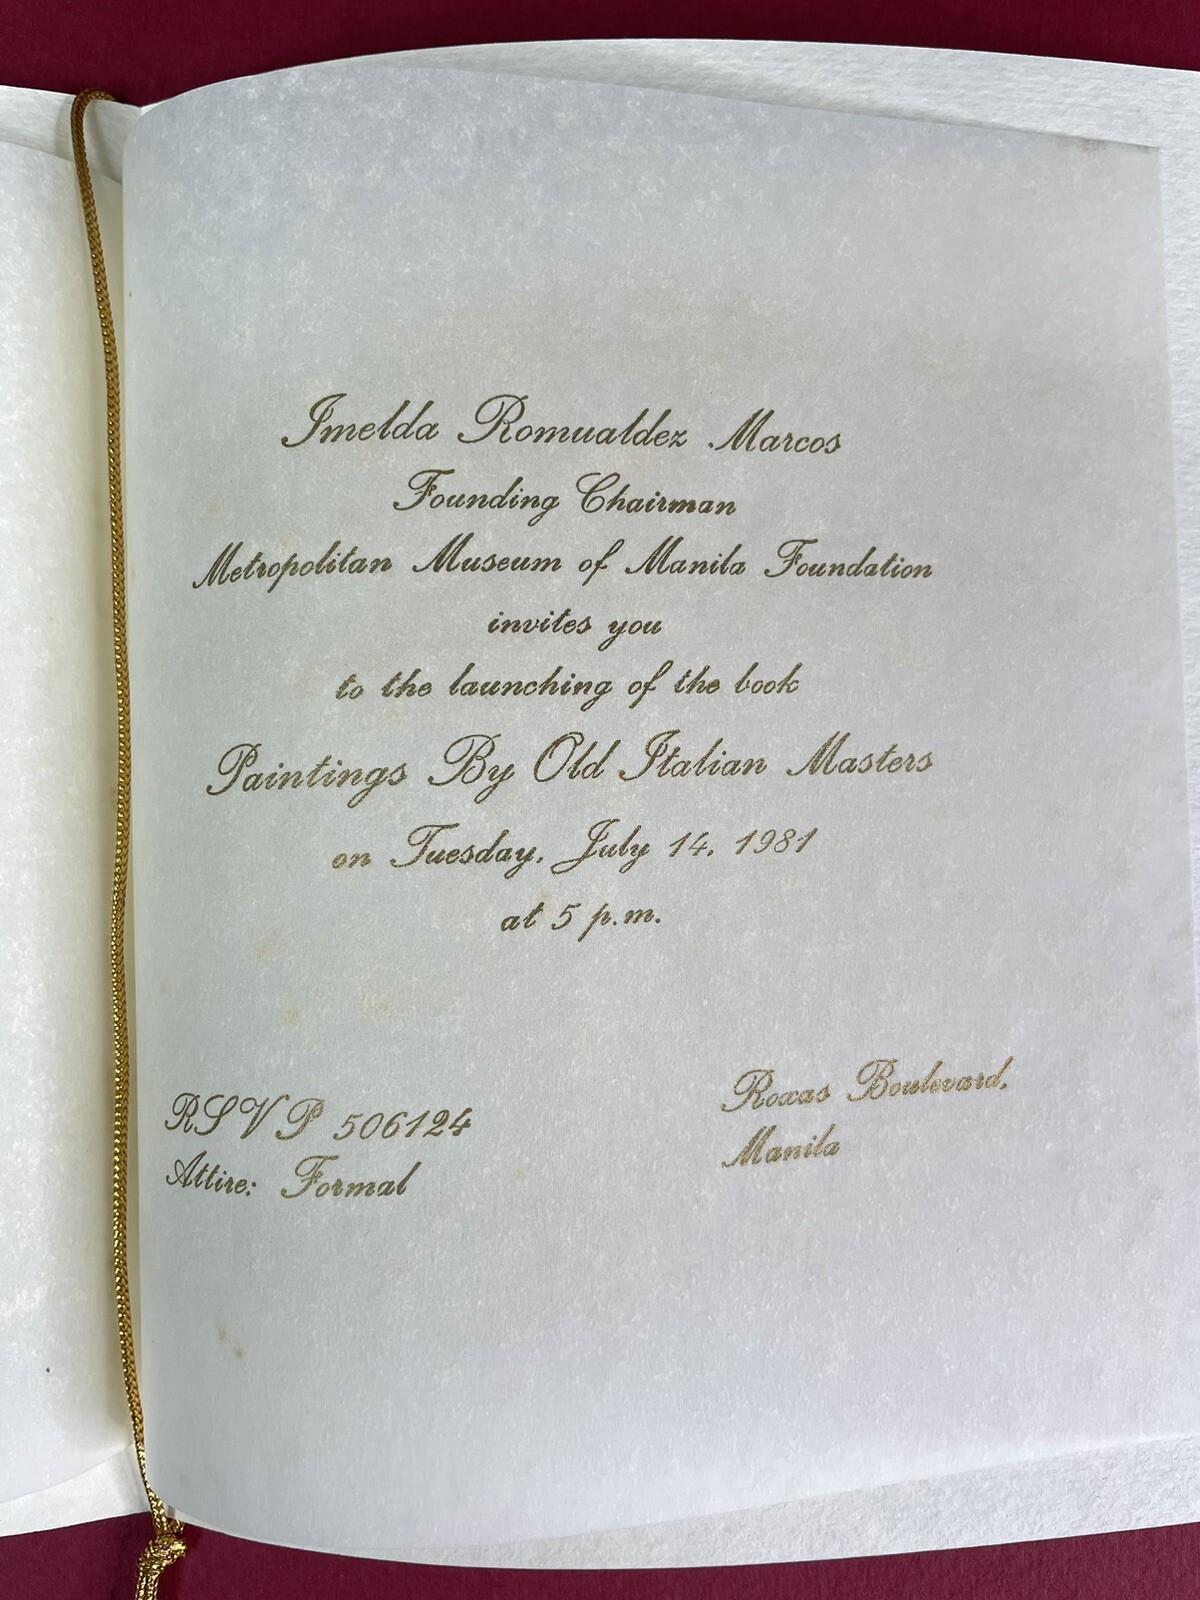 Imelda Romualdez Marcos
Founding Chairman
Metropolitan Museum of Manila Foundation
invites you
to the launching of the book
Paintings By Old Italian Masters
on Tuesday, July 14, 1981
at 5 p.m.
RSVP 506124
Attire: Formal
Roxas Boulevard,
Manila